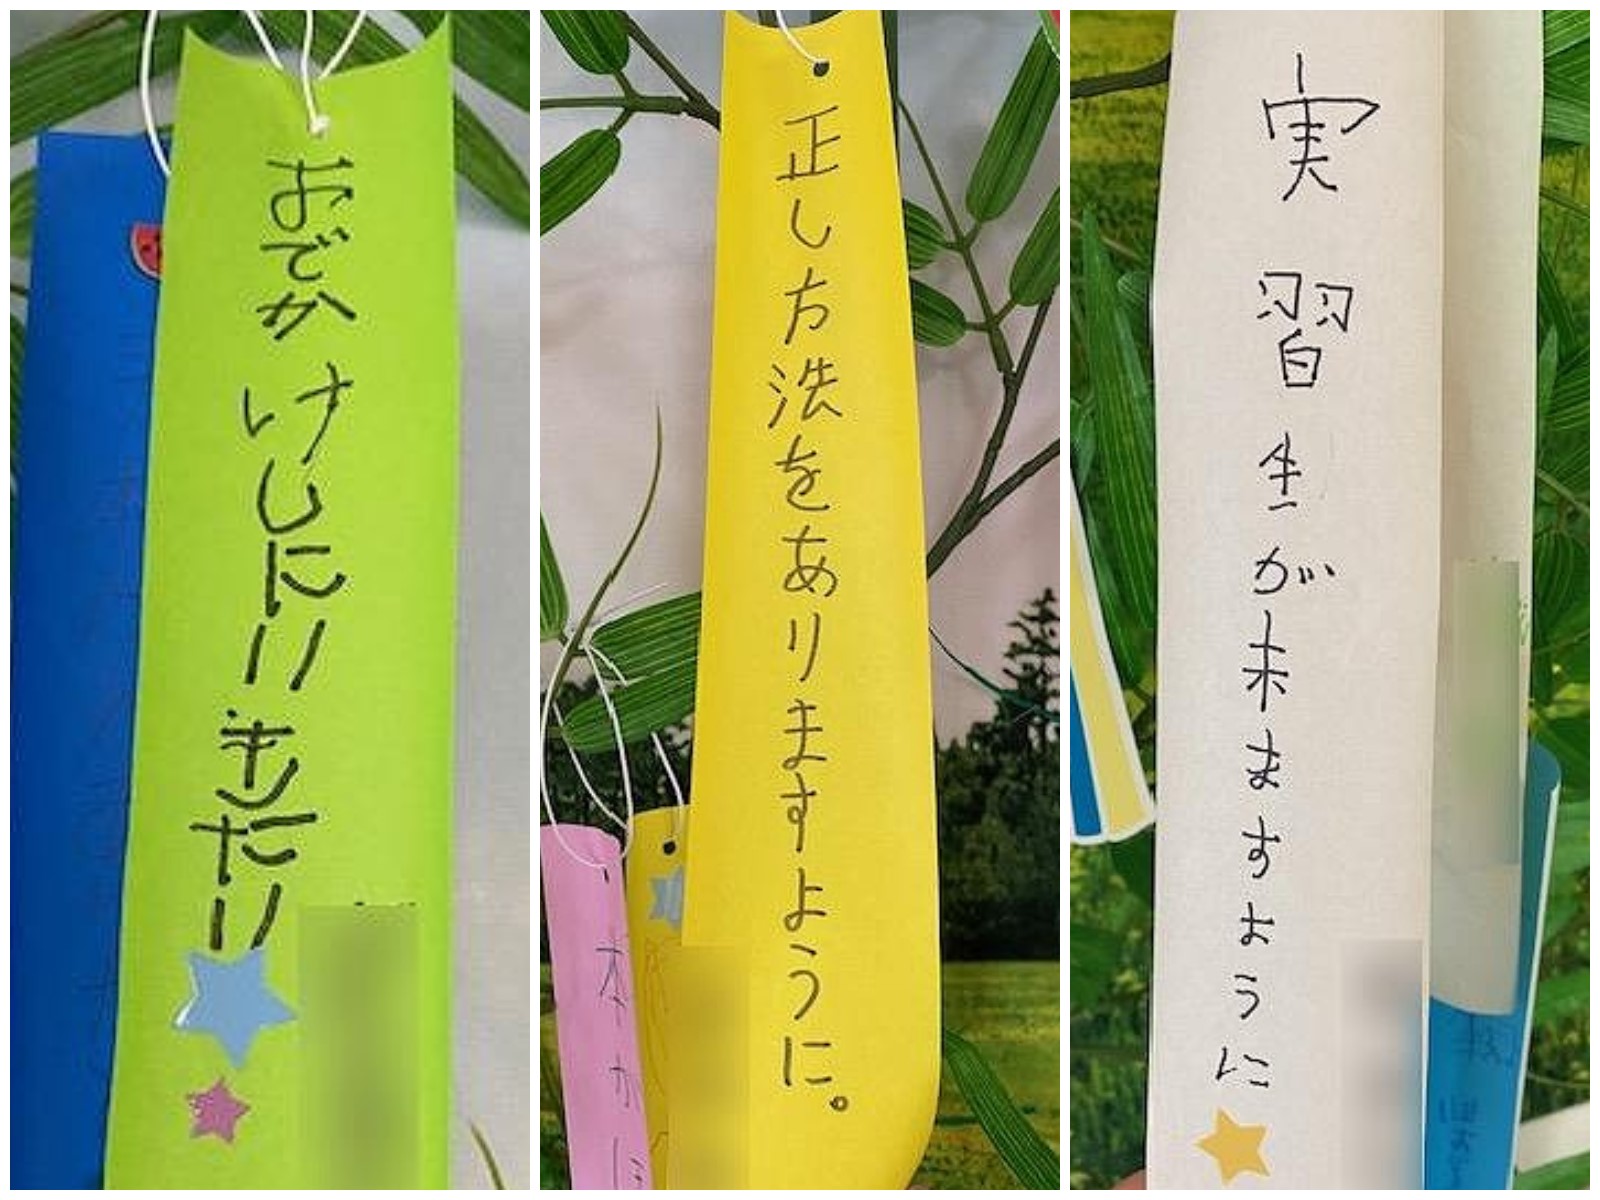 おでかけしにいきたい
正し方法をありますように。
実習生が来ますように